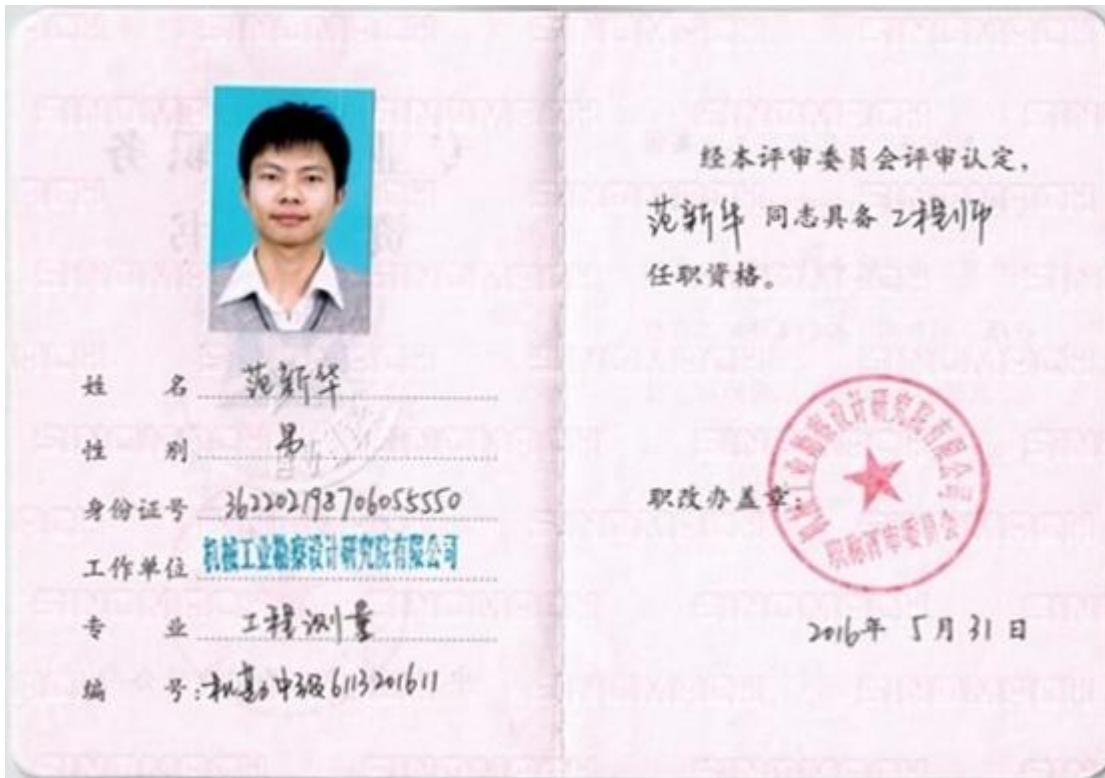 姓 名 范新华
性 别 男
身份证号 362202198706055550
工作单位 机械工业勘察设计研究院有限公司
专 业 工程测量
编 号:机勘中级6113201611
经本评审委员会评审认定,
范新华 同志具备 工程师
任职资格。
职改办盖章:
机械工业勘察设计研究院有限公司
职称评审委员会
2016年 5月 31 日